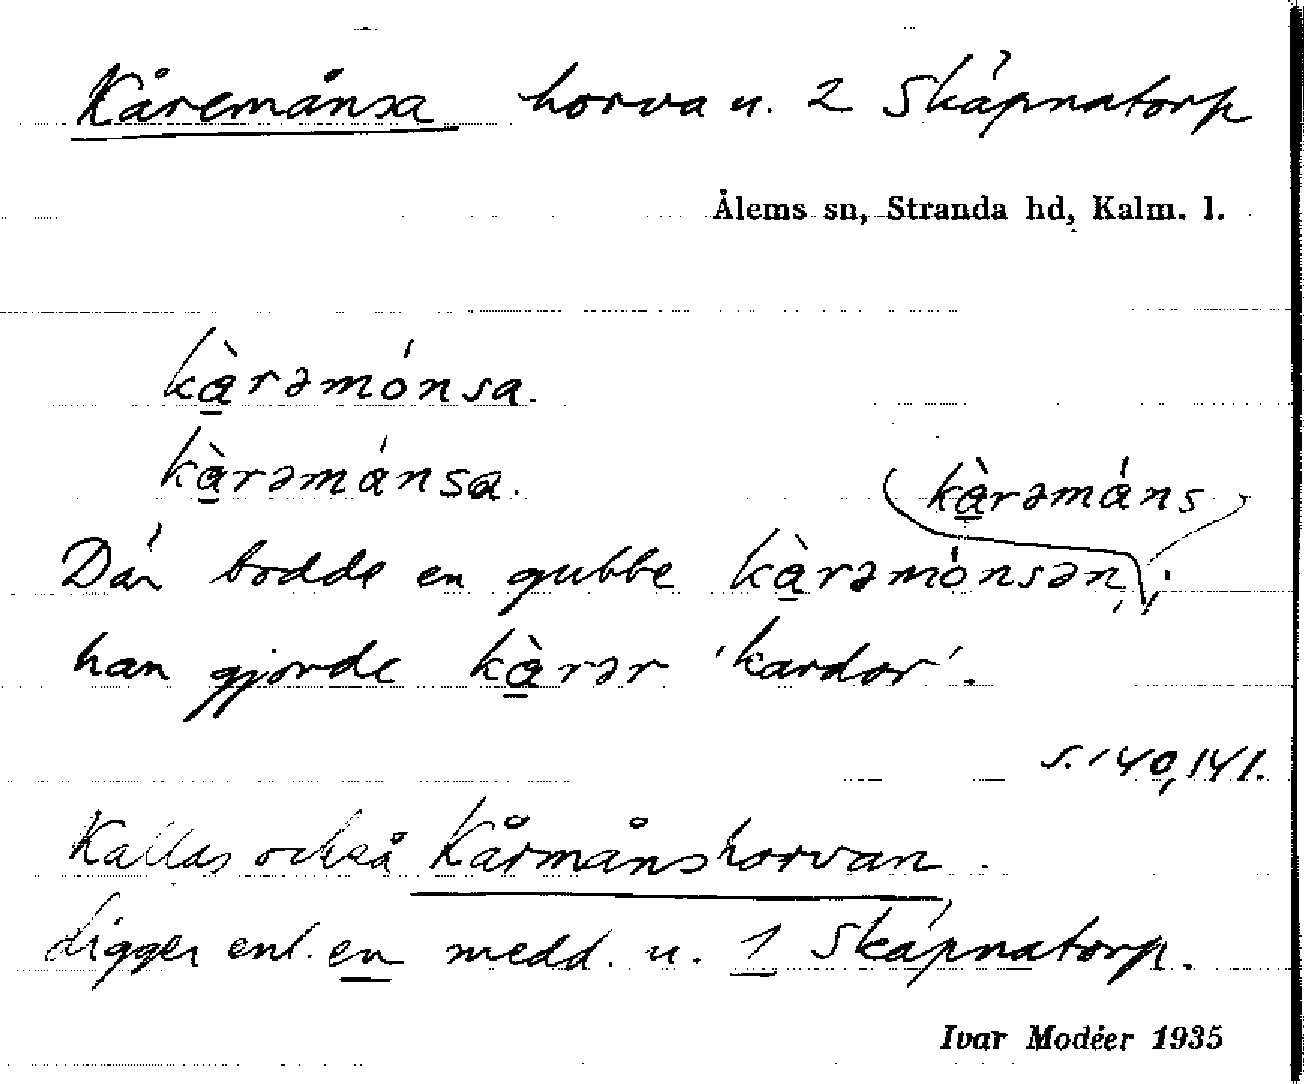 Kåremånsa horva u. 2 Skápnatorp
Ålems sn, Stranda hd, Kalm. l.
kàrəmónsa.
kàrəmánsa.
(kàrəmáns)
Där bodde en gubbe kàrəmónsən,;
han gjorde kàrər 'kardor'.
s. 140, 141.
Kallas också Kårmånshorvan.
Ligger enl. en medd. u. 1 Skápnatorp.
Ivar Modéer 1935